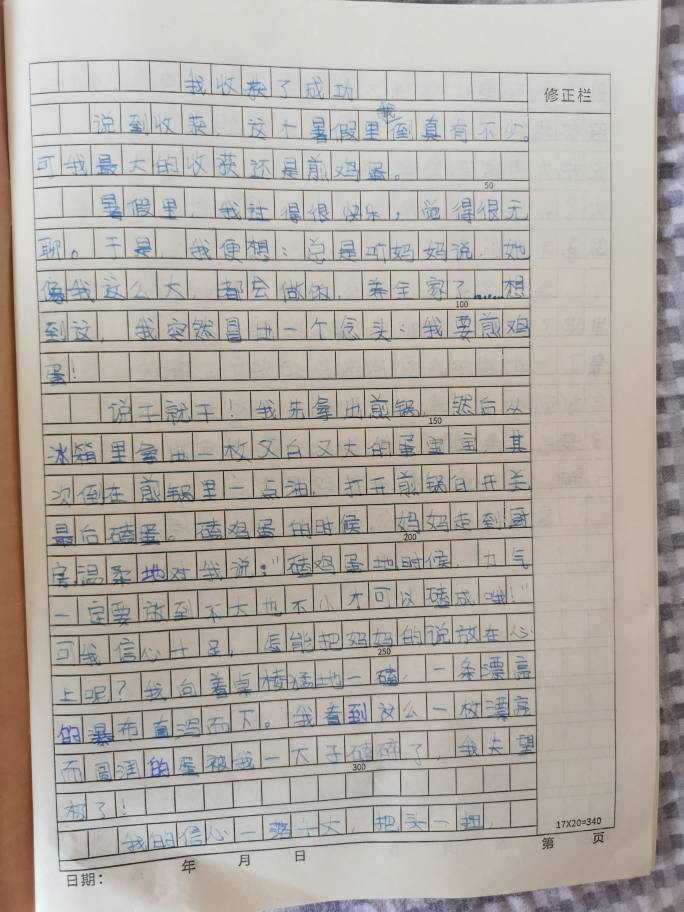 我收获了成功
修正栏
说到收获，这个暑假里我倒真有不少。
可我最大的收获还是煎鸡蛋。
50
暑假里，我过得很快乐，觉得很无
聊。于是，我便想：总是听妈妈说，她
像我这么大，都会做饭，养全家了……想
100
到这，我突然冒出一个念头：我要煎鸡
蛋！
说干就干！我先拿出煎锅，然后从
150
冰箱里拿出一枚又白又大的蛋宝宝，其
次倒在煎锅里一点油，打开煎锅的开关，
最后磕蛋。磕鸡蛋的时候，妈妈走到厨
200
房，温柔地对我说：“磕鸡蛋地时候，力气
一定要放到不大也不小才可以磕成哦！”
可我信心十足，怎能把妈妈的说放在心
250
上呢？我向着桌棱猛地一磕，一条漂亮
的瀑布直泻而下。我看到这么一枚漂亮
而圆润的蛋被我一大子磕碎了，我失望
300
极了！
我的信心一落千丈，把头一扭，
17X20=340
日期： 年 月 日
第 页